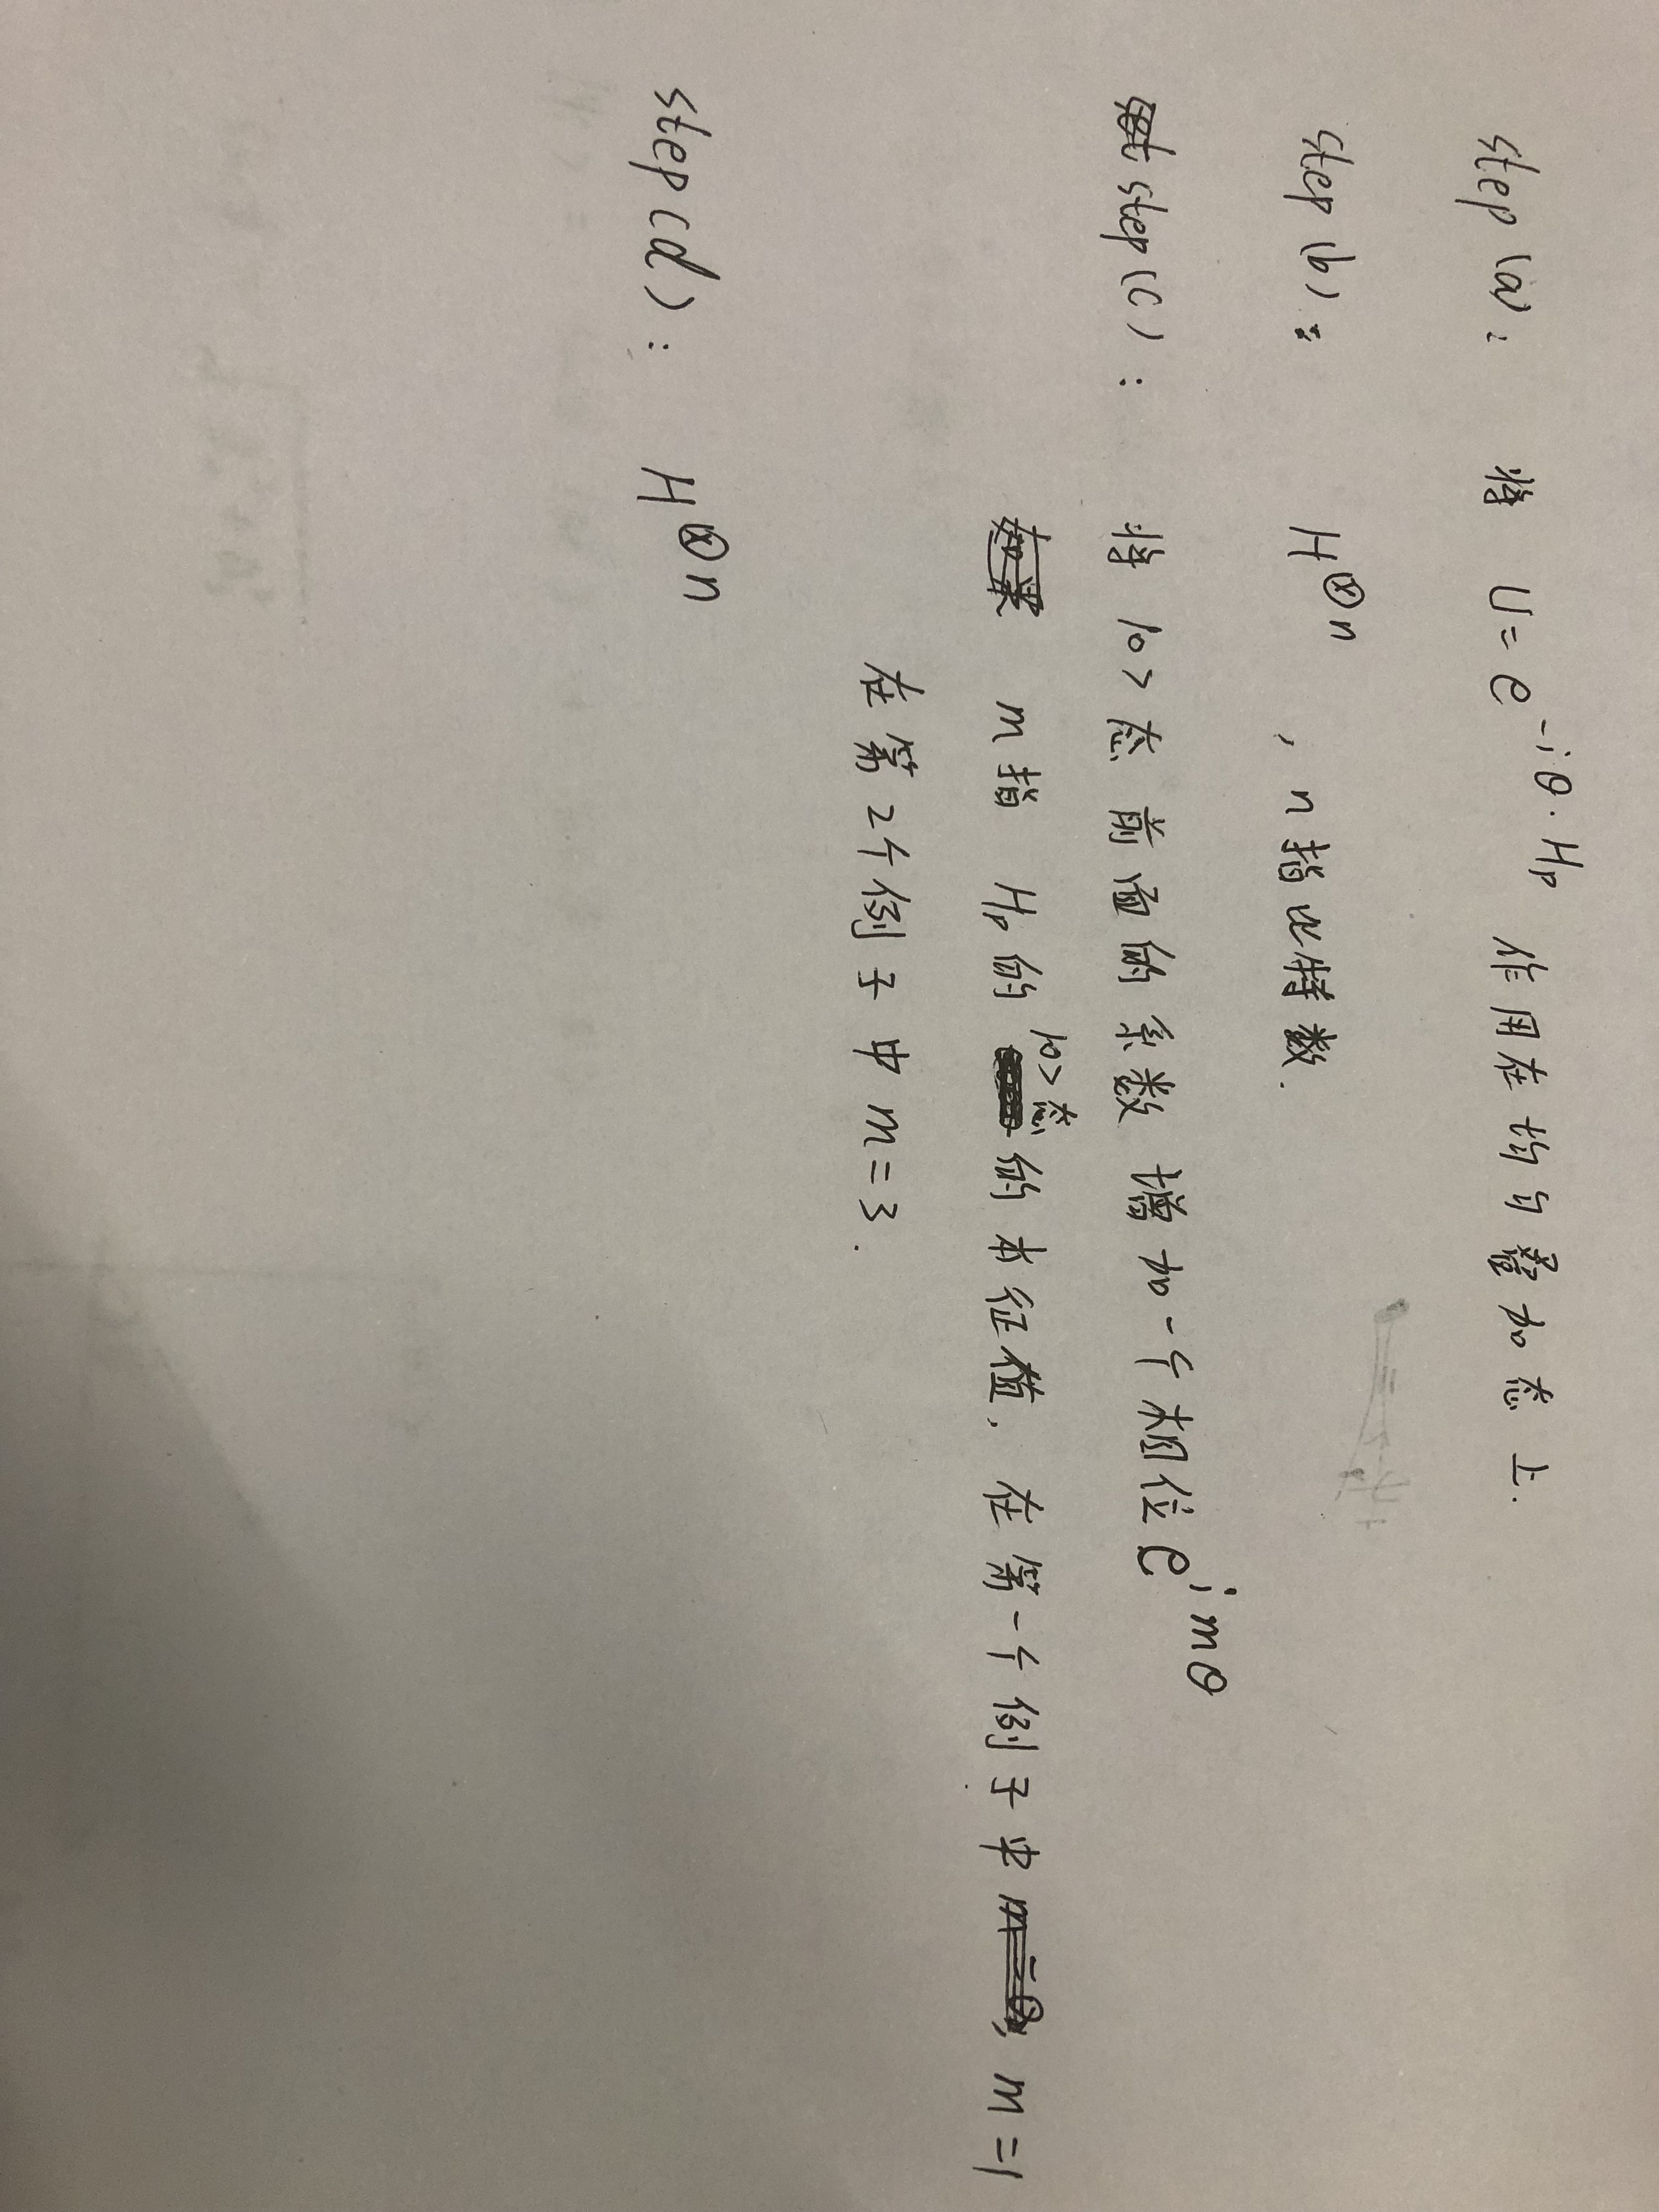 step (a): 将 U = e^{-iθ·H_P} 作用在均匀叠加态上.
step (b): H^{⊗n} , n指比特数.
step (c): 将 |0> 态前面的系数 增加一个相位 e^{imθ}
m指 H_P 的 |0>态 的本征值, 在第一个例子中 m=1
在第2个例子中 m=3.
step (d): H^{⊗n}